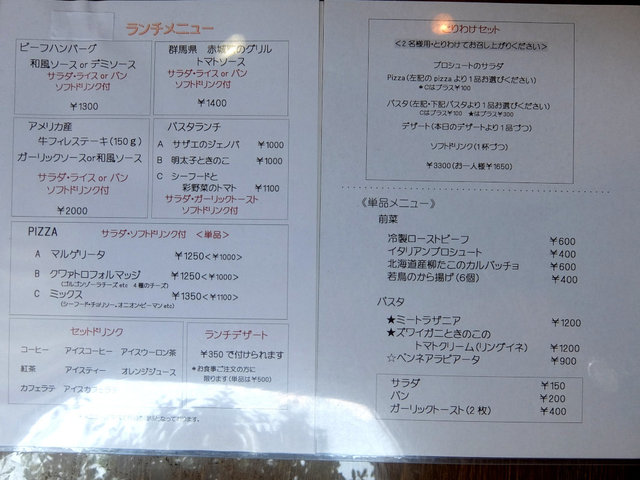 ランチメニュー
ビーフハンバーグ
和風ソース or デミソース
サラダ・ライス or パン
ソフトドリンク付
￥1300
群馬県 赤城 のグリル
トマトソース
サラダ・ライス or パン
ソフトドリンク付
￥1400
アメリカ産
牛フィレステーキ(150ｇ)
ガーリックソースor和風ソース
サラダ・ライス or パン
ソフトドリンク付
￥2000
パスタランチ
A サザエのジェノバ ￥1000
B 明太子ときのこ ￥1000
C シーフードと
彩野菜のトマト ￥1100
サラダ・ガーリックトースト
ソフトドリンク付
PIZZA サラダ・ソフトドリンク付 <単品>
A マルゲリータ ￥1250<￥1000>
B クワァトロフォルマッジ ￥1250<￥1000>
(ゴルゴンゾーラチーズetc 4種のチーズ)
C ミックス ￥1350<￥1100>
(シーフード・チョリソー、オニオン・ピーマンetc)
セットドリンク
コーヒー アイスコーヒー アイスウーロン茶
紅茶 アイスティー オレンジジュース
カフェラテ アイスカフェラテ
ランチデザート
￥350で付けられます
*お食事ご注文の方に
限ります(単品は￥500)
となっております。
とりわけセット
<2名様用・とりわけてお召し上がりください>
プロシュートのサラダ
Pizza(左記のpizzaより1品お選びください)
*Cはプラス￥100
パスタ(左記・下記パスタより1品お選びください)
Cはプラス￥100 ★はプラス￥300
デザート(本日のデザートより1品づつ)
ソフトドリンク(1杯づつ)
￥3300(お一人様￥1650)
《単品メニュー》
前菜
冷製ローストビーフ ￥600
イタリアンプロシュート ￥400
北海道産柳たこのカルパッチョ ￥600
若鳥のから揚げ(6個) ￥400
パスタ
★ミートラザニア ￥1200
★ズワイガニときのこの
トマトクリーム(リングイネ) ￥1200
☆ペンネアラビアータ ￥900
サラダ ￥150
パン ￥200
ガーリックトースト(2枚) ￥400